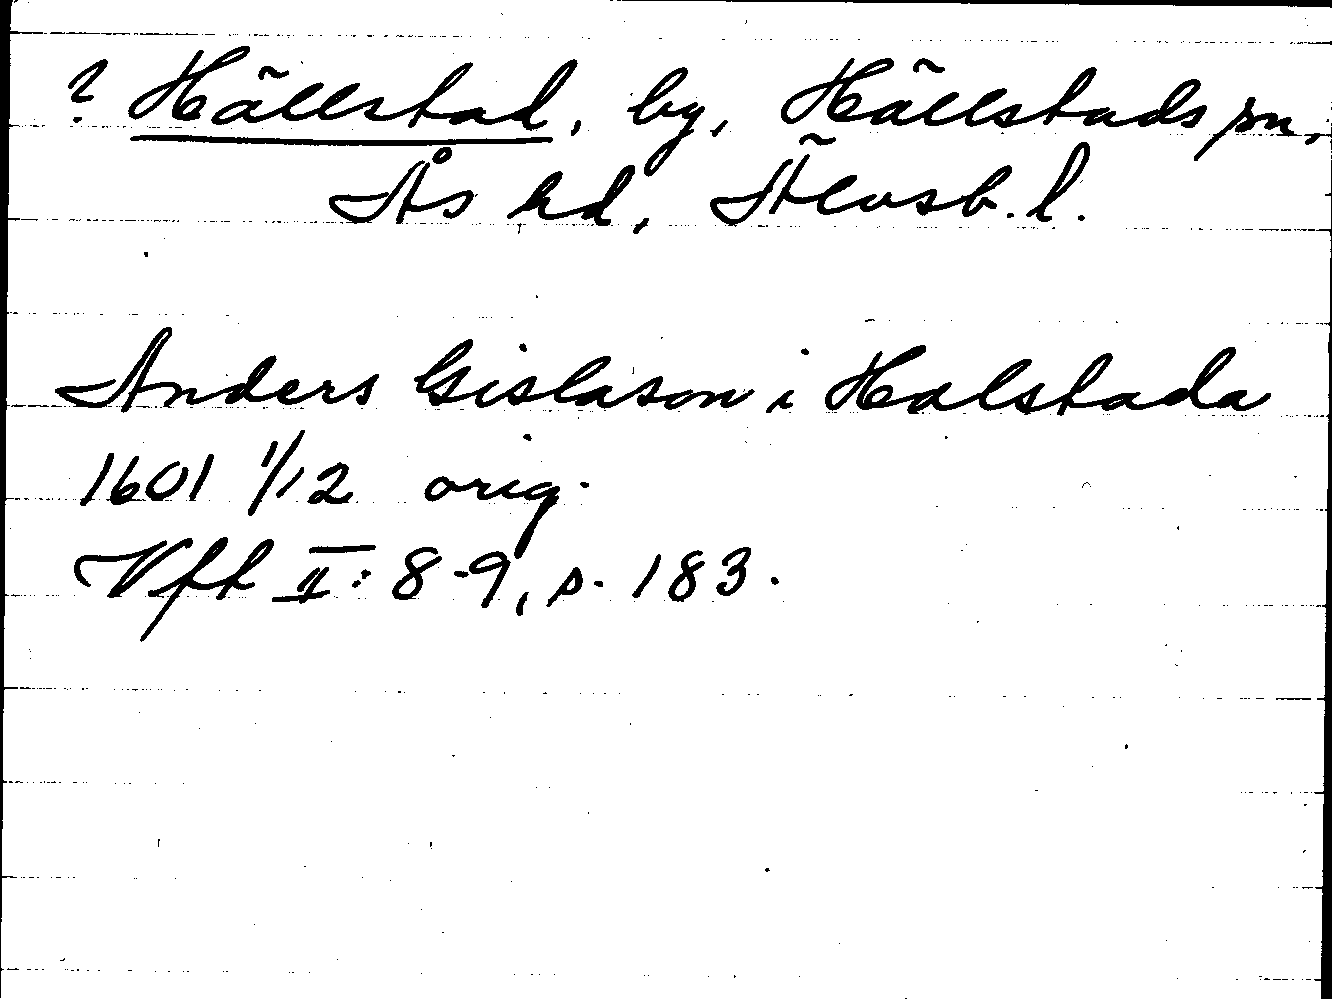 ? Hällstad, by, Hällstads sn,
Ås hd, Älvsb. l.
Anders Gislason i Halstada
1601 1/12 orig.
Vfft II: 8-9, s. 183.